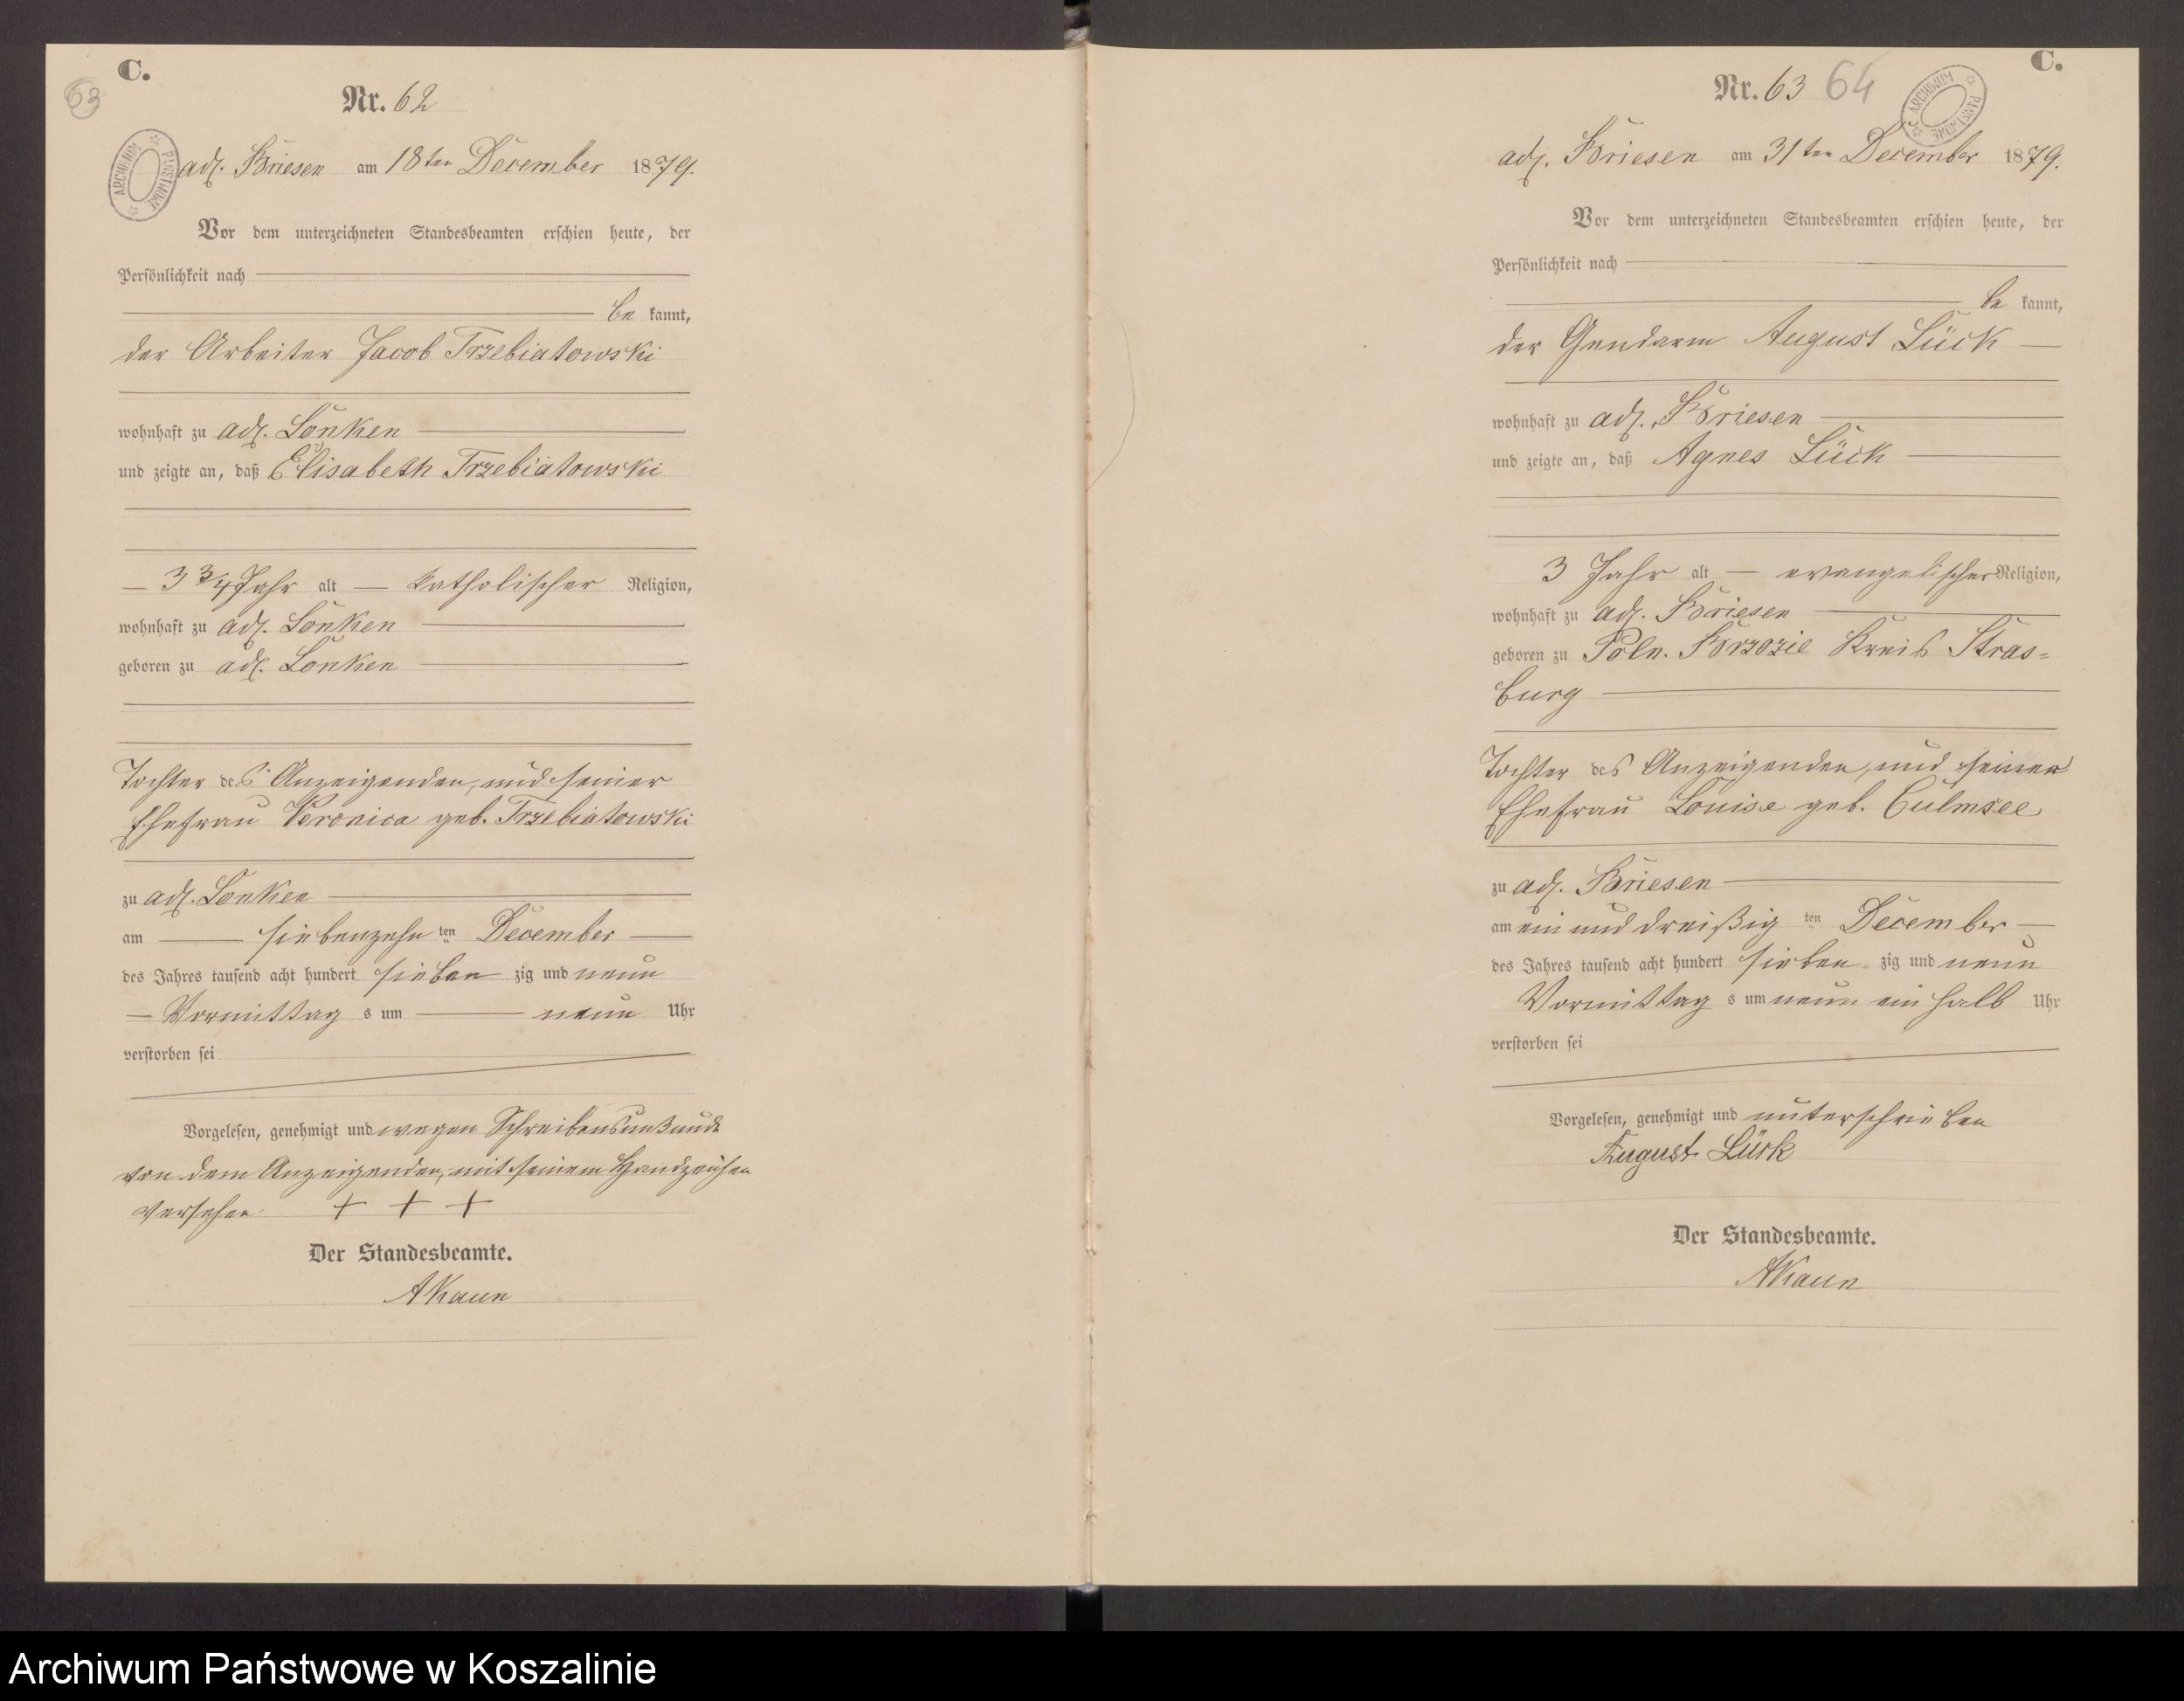 C.
63
Nr. 62
ARCHIWUM PAŃSTWOWE
adl. Briesen am 18ten December 1879.
Vor dem unterzeichneten Standesbeamten erschien heute, der
Persönlichkeit nach
be kannt,
der Arbeiter Jacob Trzebiatowski
wohnhaft zu adl. Lonken
und zeigte an, daß Elisabeth Trzebiatowski
3 3/4 Jahr alt katholischer Religion,
wohnhaft zu adl. Lonken
geboren zu adl. Lonken
Tochter des Anzeigenden, und seiner
Ehefrau Veronica geb. Trzebiatowski
zu adl. Lonken
am siebenzehn ten December
des Jahres tausend acht hundert sieben zig und neun
Vormittag s um neun Uhr
verstorben sei
Vorgelesen, genehmigt und wegen Schreibensunkunde
von dem Anzeigenden, mit seinem Handzeichen
versehen + + +
Der Standesbeamte.
AKaun
C.
Nr. 63 64
ARCHIWUM PAŃSTWOWE
adl. Briesen am 31ten December 1879.
Vor dem unterzeichneten Standesbeamten erschien heute, der
Persönlichkeit nach
be kannt,
der Gendarm August Lück
wohnhaft zu adl. Briesen
und zeigte an, daß Agnes Lück
3 Jahr alt evangelischer Religion,
wohnhaft zu adl. Briesen
geboren zu Poln. Brzozie Kreis Stras=
burg
Tochter des Anzeigenden, und seiner
Ehefrau Louise geb. Culmsee
zu adl. Briesen
am ein und dreißig ten December
des Jahres tausend acht hundert sieben zig und neun
Vormittag s um neun ein halb Uhr
verstorben sei
Vorgelesen, genehmigt und unterschrieben
August Lück
Der Standesbeamte.
AKaun
Archiwum Państwowe w Koszalinie